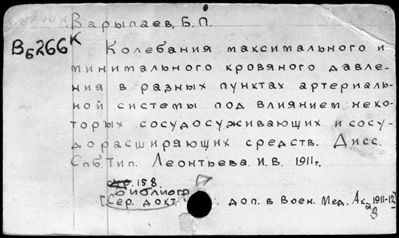 Варыпаев, Б.П.
Вб266К
Колебания максимального и
минимального кровяного давле-
ния в разных пунктах артериаль-
ной системы под влиянием неко-
торых сосудосуживающих и сосу-
дорасширяющих средств. Дисс.
Спб. Тип. Леонтьева. И.В. 1911г.
158.
библиогр.
[Сер. докт. доп. в Воен. Мед. Ак. 1911-12